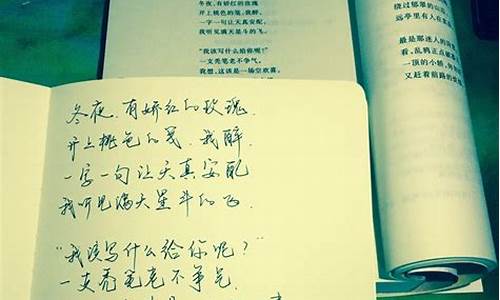 冬夜，有娇红的玫瑰
开上桃色的笺，我醉，
一字一句让天真安配
我听见满天星斗的飞。
“我该写什么给你呢？”
一支秃笔老不争气，
我想，这该是一场空欢喜，
绕过郁翠的山
远亭里有人在
最是那迷人的
看，乱鸦正点破
一顶的小轿，
又赶着前路的
冬夜 有娇红的玫瑰.
开上桃色的笺，我醉，
一字一句让天真安配
我听见满天星斗的飞.
“我该写什么给你呢？”
一支秃笔老不争气，